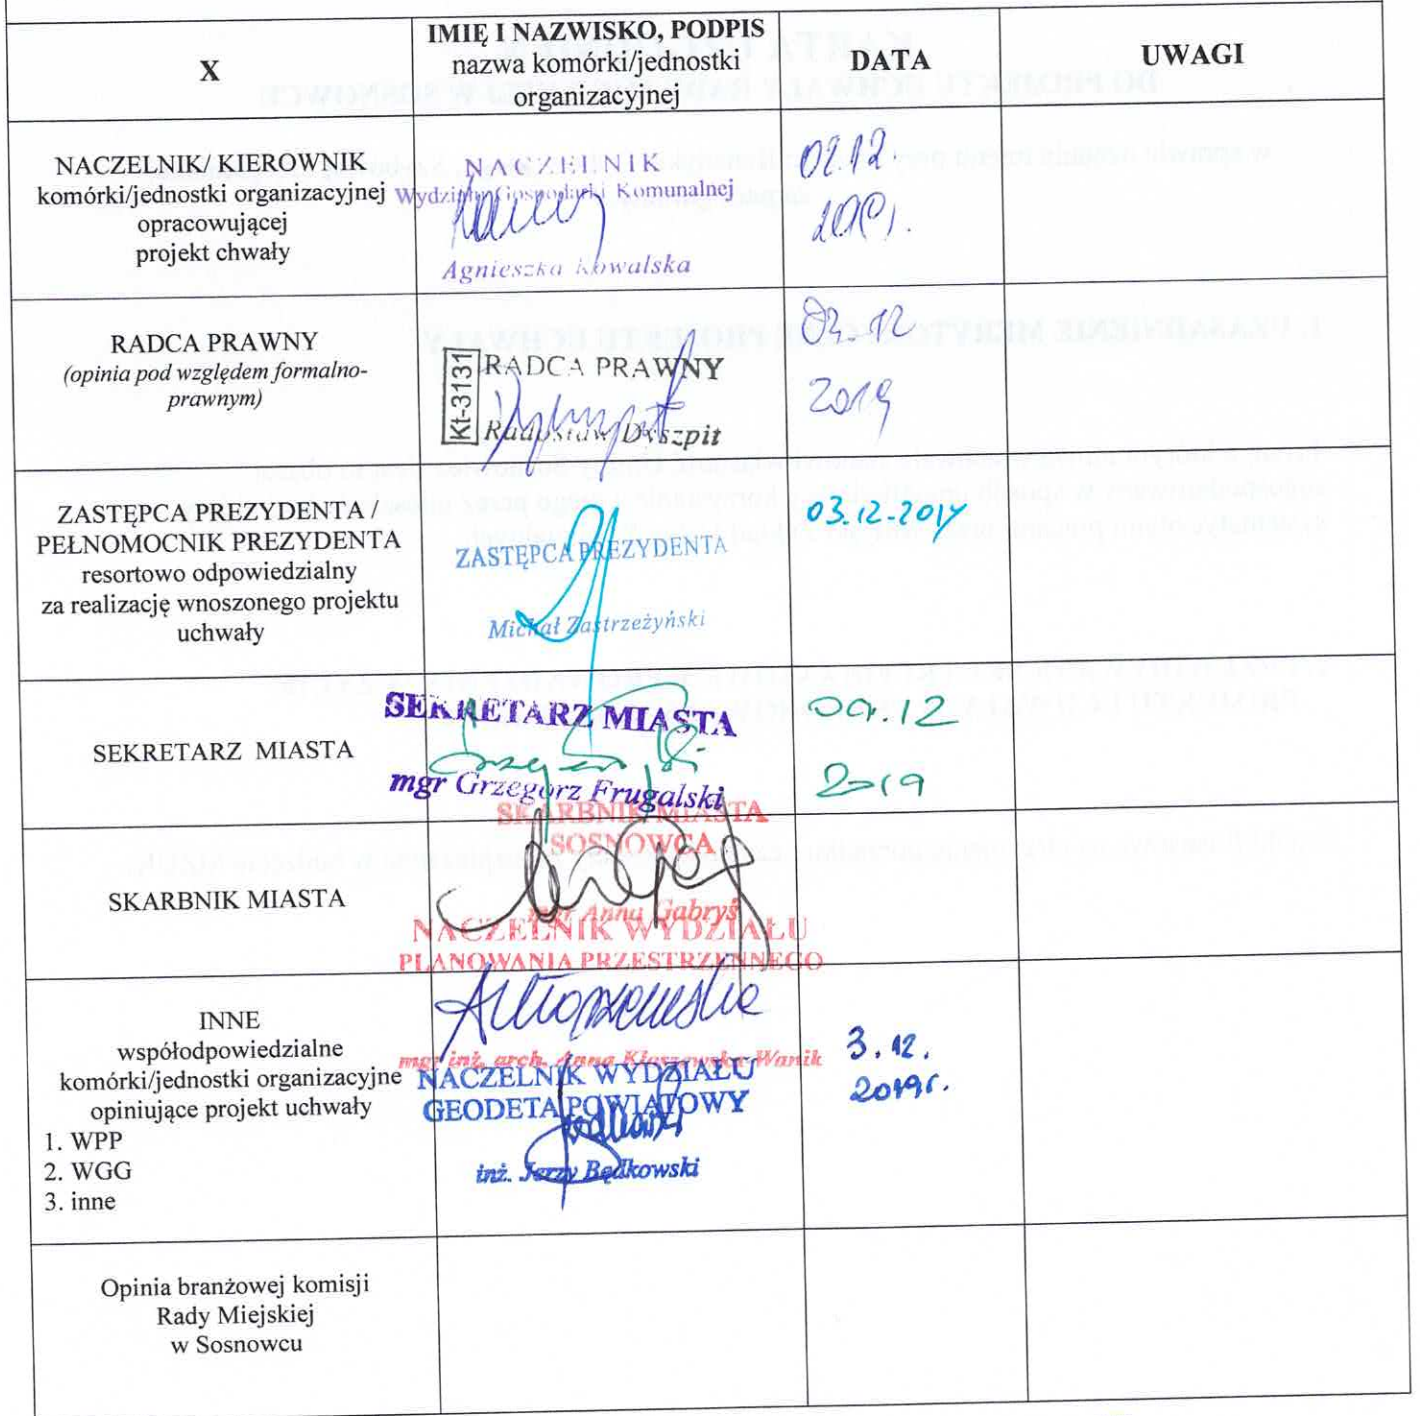 X
IMIĘ I NAZWISKO, PODPIS
nazwa komórki/jednostki
organizacyjnej
DATA
UWAGI
NACZELNIK/ KIEROWNIK
komórki/jednostki organizacyjnej
opracowującej
projekt chwały
NACZELNIK
Wydziału Gospodarki Komunalnej
Agnieszka Kowalska
02.12
2019r.
RADCA PRAWNY
(opinia pod względem formalno-
prawnym)
Kt-3131
RADCA PRAWNY
Radosław Dyszpit
02.12
2019
ZASTĘPCA PREZYDENTA /
PEŁNOMOCNIK PREZYDENTA
resortowo odpowiedzialny
za realizację wnoszonego projektu
uchwały
ZASTĘPCA PREZYDENTA
Michał Zastrzeżyński
03.12.2019
SEKRETARZ MIASTA
SEKRETARZ MIASTA
mgr Grzegorz Frugalski
12
2019
SKARBNIK MIASTA
SKARBNIK MIASTA
SOSNOWCA
mgr Anna Gabryś
INNE
współodpowiedzialne
komórki/jednostki organizacyjne
opiniujące projekt uchwały
1. WPP
2. WGG
3. inne
NACZELNIK WYDZIAŁU
PLANOWANIA PRZESTRZENNEGO
mgr inż. arch. Anna Kłoszewska-Wanik
NACZELNIK WYDZIAŁU
GEODETA POWIATOWY
inż. Jerzy Będkowski
3.12.
2019r.
Opinia branżowej komisji
Rady Miejskiej
w Sosnowcu